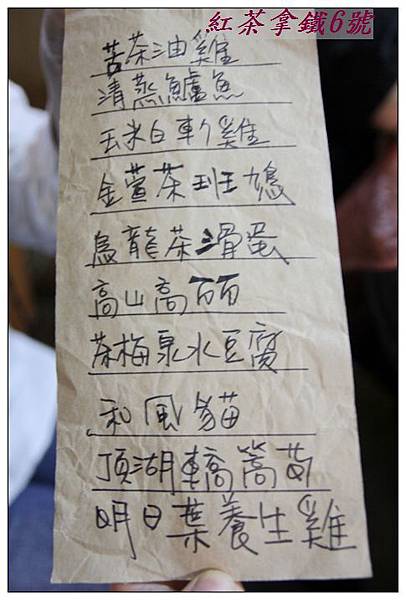 紅茶拿鐵6號
苦茶油雞
清蒸鱸魚
玉米白斬雞
金萱茶班
烏龍茶滑蛋
高山高丽
茶梅泉水豆腐
和風貓
頂湖轎篙
明日葉養生雞